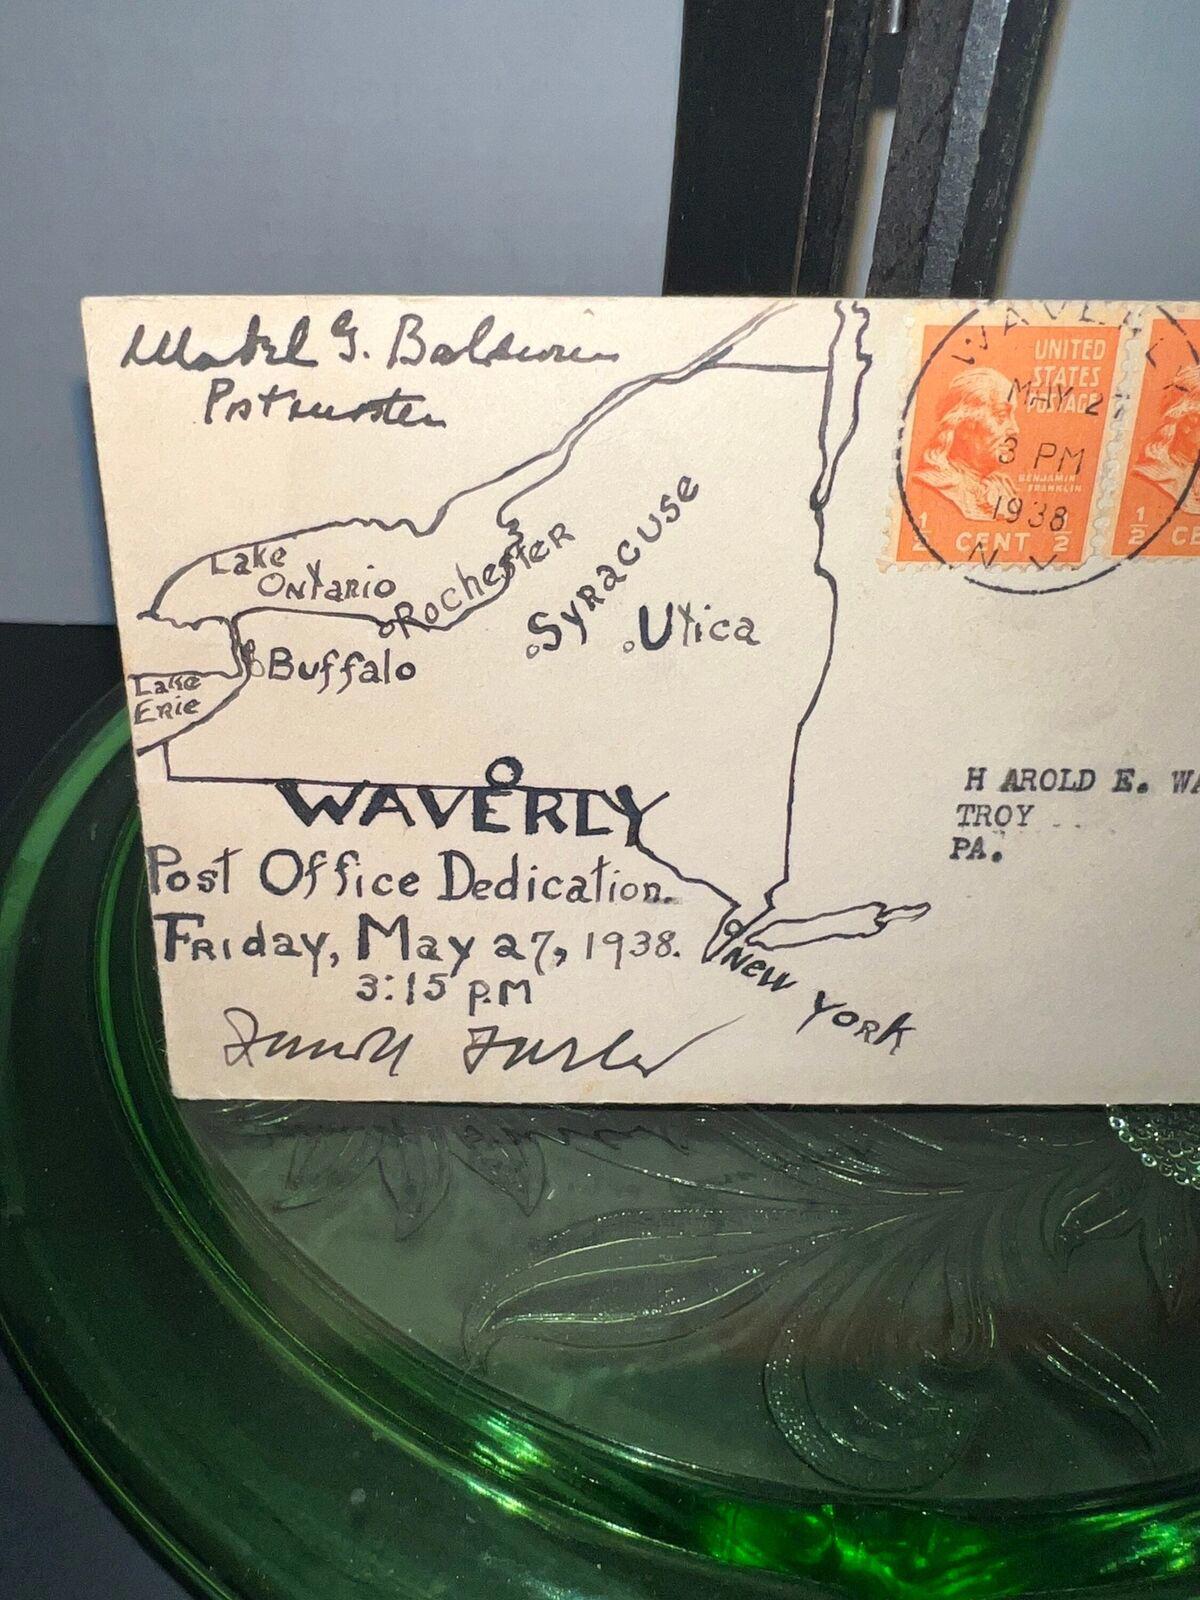 Mabel G. Baldwin
Postmaster
UNITED
STATES
POSTAGE
BENJAMIN
FRANKLIN
1/2 CENT 1/2
1/2 CE
WAVERLY
MAY 2
3 PM
1938
N.Y.
Lake
Ontario
Rochester
Syracuse
Utica
Buffalo
Lake
Erie
WAVERLY
Post Office Dedication.
Friday, May 27, 1938.
3:15 P.M
New York
HAROLD E. WA
TROY
PA.